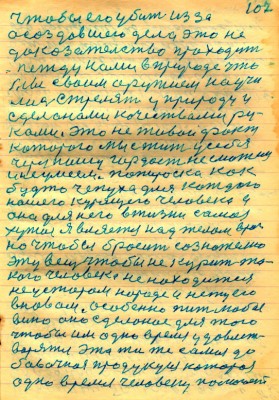 107
чтобы его убит из за
осоздавшего дела это не
доказательство приходит
между нами в природе что
были своим оружием научи
лис стрелят у природу и
сделоними качествами ру-
ками. Это не живой факт
которого мыслит у себя
через нашу гордост не сможем
и не умеем. папироска как
будто чепуха для каждого
нашего курящего человека а
она для него в жизни самая
хужая является над телом вред
но чтобы бросит сознательно
эту вещ чтобы не курит та-
кого человека не находится
не у старом народе и нет у его
в новом. Особенно пит любое
вино оно сделоное для этого
чтобы им одно время удовлет-
ворятся эта ти же самая до
бавочная продукция которая
одно время человеку помогает